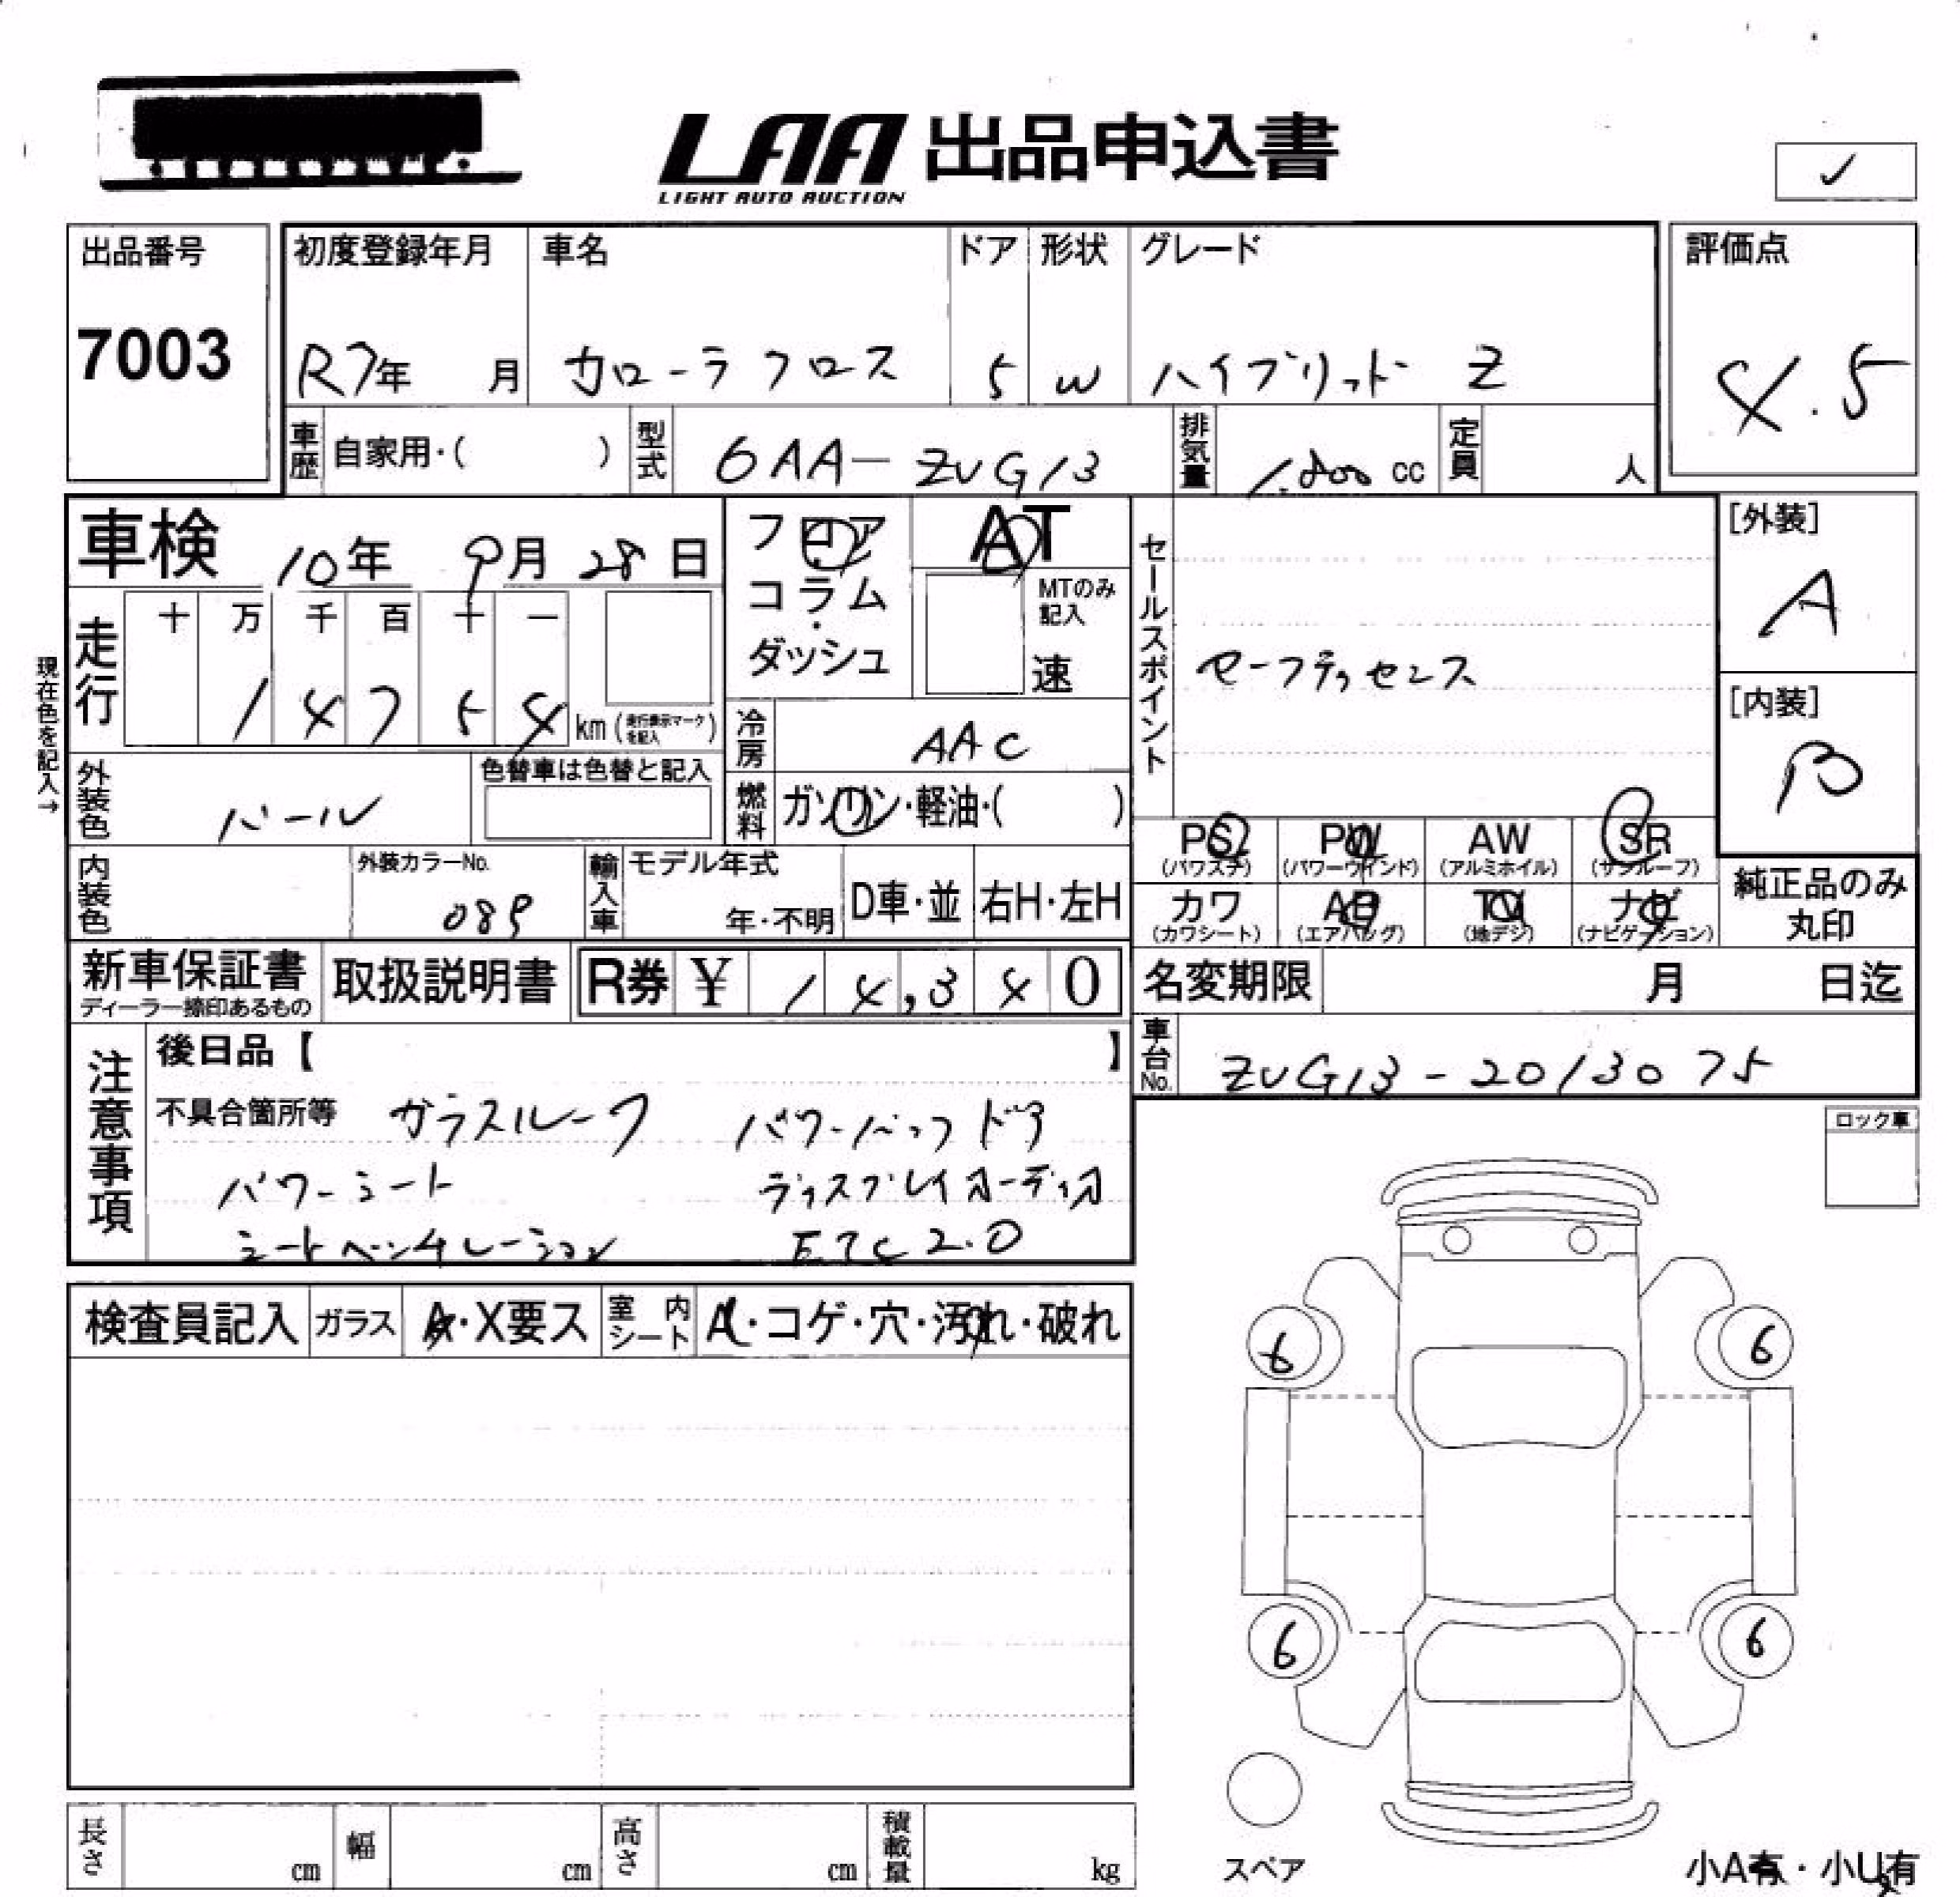 LAA 出品申込書
LIGHT AUTO AUCTION
✓
出品番号 7003
初度登録年月 R7年 月
車名 カローラクロス
ドア 5
形状 W
グレード ハイブリット Z
評価点 4.5
車歴 自家用・( )
型式 6AA-ZVG13
排気量 1.800 cc
定員 人
車検 10年 9月 28日
フロア・コラム・ダッシュ
AT
MTのみ記入
速
セールスポイント
セーフティセンス
[外装] A
[内装] B
現在色を記入→
走行 十 万 千 百 十 一
1 4 7 5 4 km (走行表示マークを記入)
冷房 AAC
燃料 ガソリン・軽油・( )
外装色 パール
色替車は色替と記入
内装色
外装カラーNo. 089
輸入車 モデル年式 年・不明
D車・並 右H・左H
PS (パワステ) PW (パワーウインド) AW (アルミホイル) SR (サンルーフ)
カワ (カワシート) AB (エアバッグ) TV (地デジ) ナビ (ナビゲーション)
純正品のみ丸印
新車保証書 ディーラー捺印あるもの
取扱説明書
R券 ¥ 14,340
名変期限 月 日迄
車台No. ZVG13-2013075
注意事項
後日品【 】
不具合箇所等 ガラスルーフ パワーバックドア
パワーシート ディスプレイオーディオ
シートベンチレーション ETC2.0
ロック車
検査員記入 ガラス A・X要ス 室内シート A・コゲ・穴・汚れ・破れ
6 6
6 6
スペア
長さ cm 幅 cm 高さ cm 積載量 kg
小A有・小U有